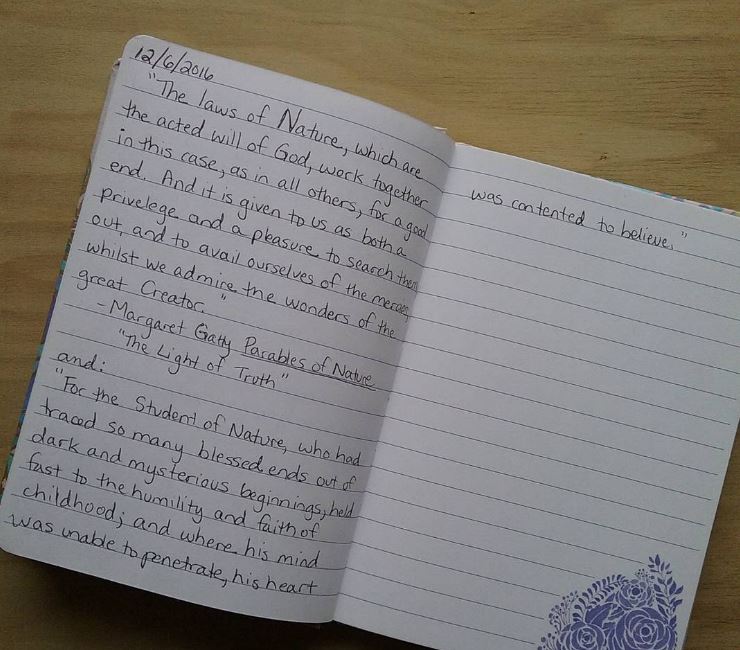 12/6/2016
"The laws of Nature, which are
the acted will of God, work together
in this case, as in all others, for a good
end. And it is given to us as both a
privelege and a pleasure to search them
out, and to avail ourselves of the mercies,
whilst we admire the wonders of the
great Creator."
-Margaret Gatty Parables of Nature
"The Light of Truth"
and:
"For the Student of Nature, who had
traced so many blessed ends out of
dark and mysterious beginnings, held
fast to the humility and faith of
childhood; and where his mind
was unable to penetrate, his heart
was contented to believe."